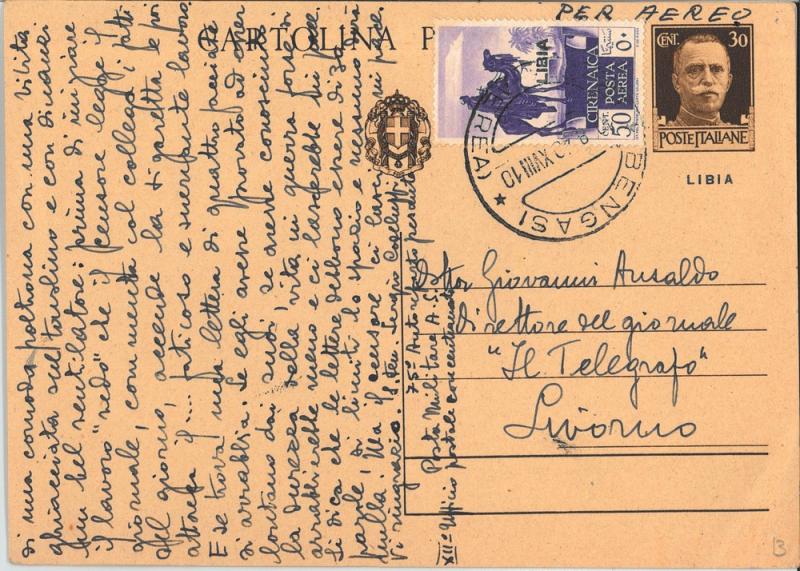 PER AEREO
CARTOLINA P
CENT. 30
POSTE ITALIANE
LIBIA
LIBIA
CIRENAICA
POSTA
AEREA
CENT. 50
BENGASI
XVIII 10
Dottor Giovanni Ansaldo
direttore del giornale
"Il Telegrafo"
Livorno
di una comoda poltrona con una bibita
ghiacciata sul tavolino e con dinanzi
un bel ventilatore: prima di iniziare
il lavoro "sodo" che il censore legge il
giornale, commenta col collega i fatti
del giorno, accende la sigaretta e poi
attacca il .... faticoso e snervante lavoro.
E se trova una lettera di quattro facciate
si arrabbia. Se egli avesse provato ad esser
lontano dai suoi, se avesse conosciuto
la durezza della vita in guerra forse si
arrabbierebbe meno e ci lascerebbe in pace.
Si dica che le lettere debbono essere di 20
parole, si limiti lo spazio e nessuno dirà
nulla. Ma il censore ci lasci in pace.
Vi ringrazio. S. Ten. Sergio
75° Autoreparto pesante
Posta Militare A.S.
XII° Ufficio postale concentramento
B